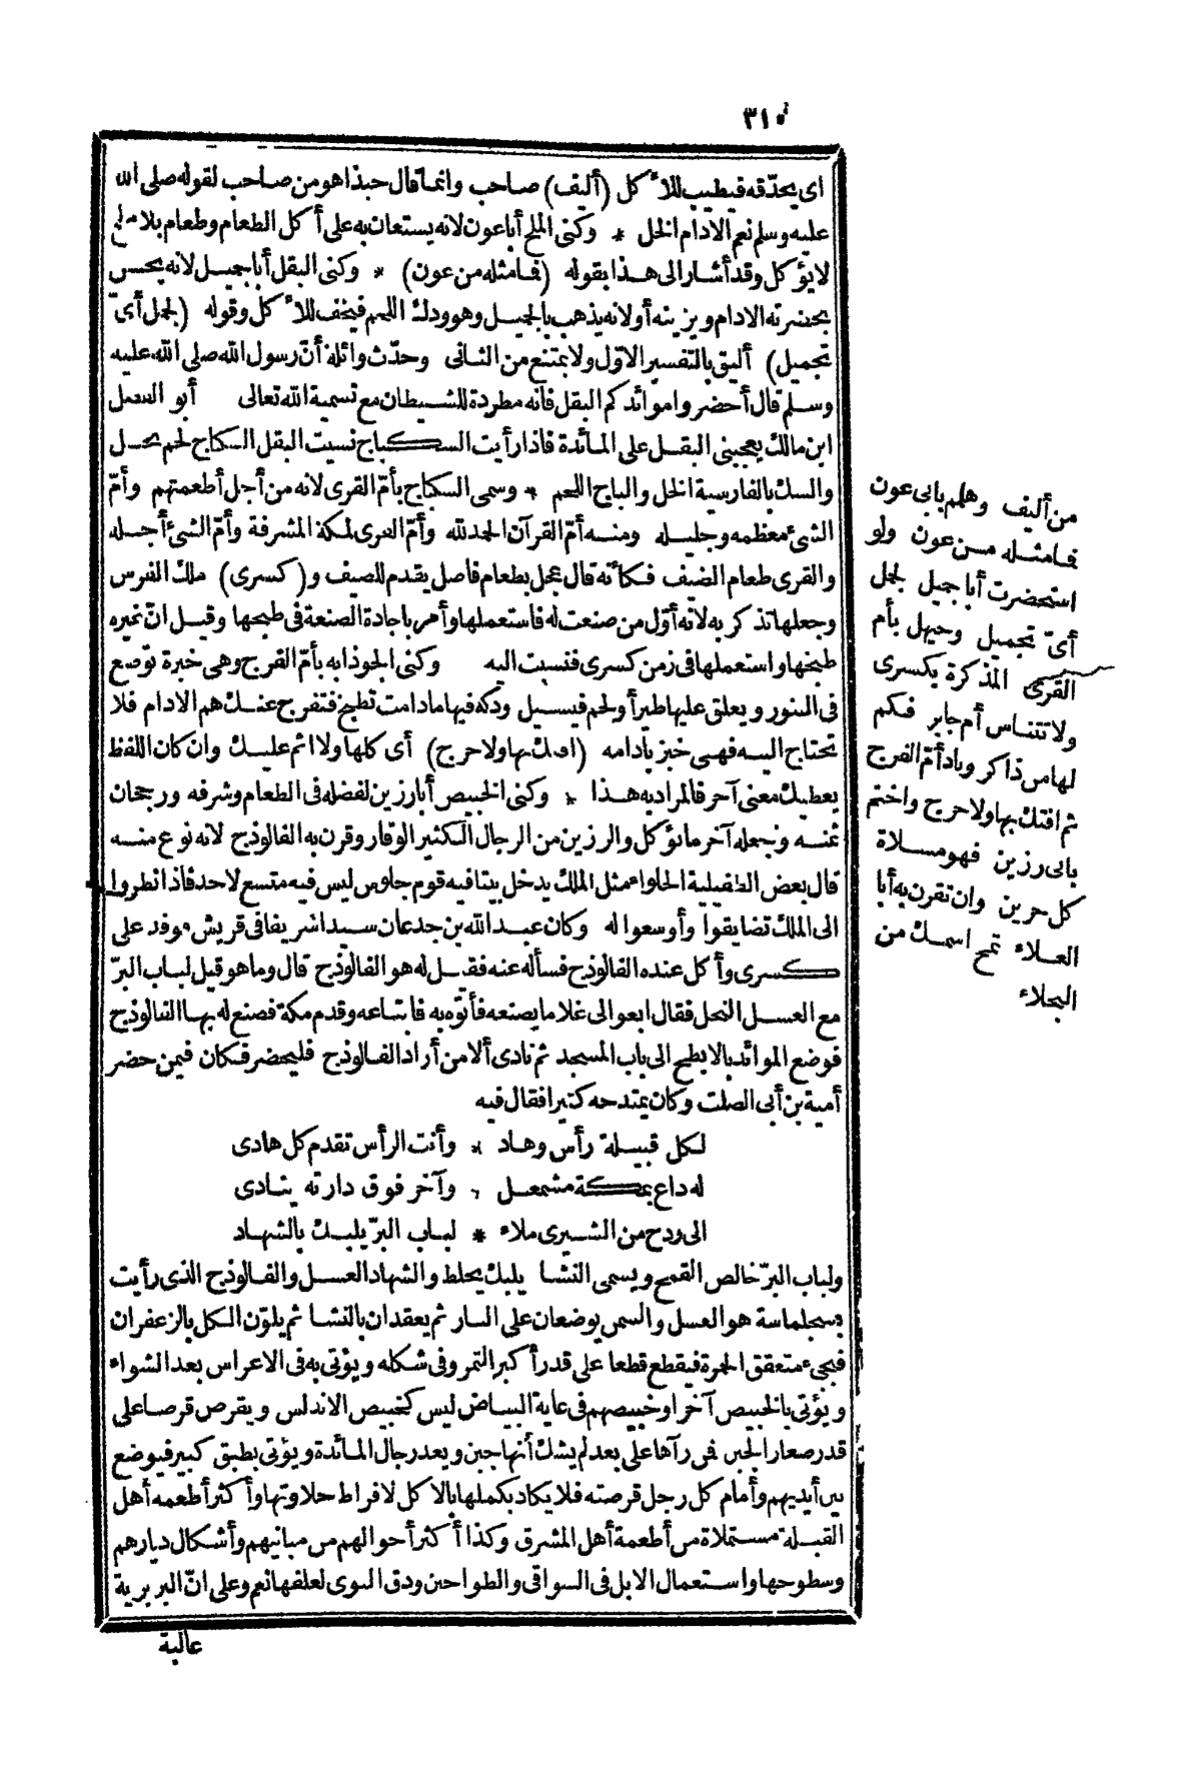 ٣١٥
اى يحذقه فيطيب للأكل (أليف) صاحب وانما قال حبذا هو من صاحب لقوله صلى الله
عليه وسلم نعم الادام الخل * وكنى الملح أبا عون لانه يستعان به على أكل الطعام وطعام بلا ملح
لا يؤكل وقد أشار الى هذا بقوله (فما مثله من عون) * وكنى البقل أبا جميل لانه يحسن
بحضرته الادام ويزينه أو لانه يذهب بالجميل وهو ودك اللحم فيخف للأكل وقوله (لجمل أىّ
تجميل) أليق بالتفسير الاوّل ولا يمتنع من الثانى وحدّث واثلة أنّ رسول الله صلى الله عليه
وسلم قال أحضروا موائدكم البقل فانه مطردة للشيطان مع تسمية الله تعالى أبو السمل
ابن مالك يعجبنى البقل على المائدة فاذا رأيت السكباج نسيت البقل السكباج لحم بخل
والسك بالفارسية الخل والباج اللحم * وسمى السكباج بأمّ القرى لانه من أجل أطعمتهم وأمّ
الشئ معظمه وجليله ومنه أمّ القرآن الحمد لله وأمّ القرى لمكة المشرفة وأمّ الشئ أجله
والقرى طعام الضيف فكأنه قال عجل بطعام فاضل يقدم للضيف و(كسرى) ملك الفرس
وجعلها تذكر به لانه أوّل من صنعت له فاستعملها وأمر باجادة الصنعة فى طبخها وقيل انّ غيره
طبخها واستعملها فى زمن كسرى فنسبت اليه وكنى الجوذابه بأمّ الفرج وهى خبزة توضع
فى التنور ويعلق عليها طير أو لحم فيسيل ودكه فيها مادامت تطبخ فتفرج عنك هم الادام فلا
تحتاج اليه فهى خبز بادامه (افتك بها ولا حرج) أى كلها ولا اثم عليك وان كان اللفظ
يعطيك معنى آخر فالمراد به هذا * وكنى الخبيص أبا رزين لفضله فى الطعام وشرفه ورجحان
ثمنه ونجعله آخر ما يؤكل والرزين من الرجال الكثير الوقار وقرن به الفالوذج لانه نوع منه
قال بعض الطفيلية الحلواء مثل الملك يدخل بيتا فيه قوم جلوس ليس فيه متسع لاحد فاذا نظروا
الى الملك تضايقوا وأوسعوا له وكان عبد الله بن جدعان سيدا شريفا فى قريش فوفد على
كسرى وأكل عنده الفالوذج فسأله عنه فقيل له هو الفالوذج قال وما هو قيل لباب البرّ
مع العسل النحل فقال ابعوالى غلاما يصنعه فأتوه به فابتاعه وقدم مكة فصنع له بها الفالوذج
فوضع الموائد بالابطح الى باب المسجد ثم نادى ألا من أراد الفالوذج فليحضر فكان فيمن حضر
أمية بن أبى الصلت وكان يمتدحه كثيرا فقال فيه
لكل قبيلة رأس وهاد * وأنت الرأس تقدم كل هادى
له داع بمكة مشمعل * وآخر فوق دارته ينادى
الى ردح من الشيزى ملاء * لباب البرّ يلبك بالشهاد
ولباب البرّ خالص القمح ويسمى النشا يلبك يخلط والشهاد العسل والفالوذج الذى رأيت
بسجلماسة هو العسل والسمن يوضعان على النار ثم يعقدان بالنشا ثم يلوّن الكل بالزعفران
فيجىء متعقق الحمرة فيقطع قطعا على قدر أكبر التمر وفى شكله ويؤتى به فى الاعراس بعد الشواء
ويؤتى بالخبيص آخرا وخبيصهم فى غاية البياض ليس كخبيص الاندلس ويقرص قرصا على
قدر صغار الجبن فمن رآها على بعد لم يشك أنها جبن ويعد رجال المائدة ويؤتى بطبق كبير فيوضع
بين أيديهم وأمام كل رجل قرصته فلا يكاد يكملها بالاكل لافراط حلاوتها وأكثر أطعمه أهل
القبلة مستملاة من أطعمة أهل المشرق وكذا أكثر أحوالهم من مبانيهم وأشكال ديارهم
وسطوحها واستعمال الابل فى السواقى والطواحين ودق النوى لعلفها نعم وعلى انّ البربرية
غالبة
من أليف وهلم بابى عون
فما مثله من عون ولو
استحضرت أبا جميل لجمل
أىّ تجميل وحيهل بأم
القرى المذكرة بكسرى
ولا تتناس أم جابر فكم
لها من ذاكر وناد أمّ الفرج
ثم افتك بها ولا حرج واختم
بابى رزين فهو مسلاة
كل حزين وان تقرن به أبا
العلاء تمح اسمك من
البخلاء